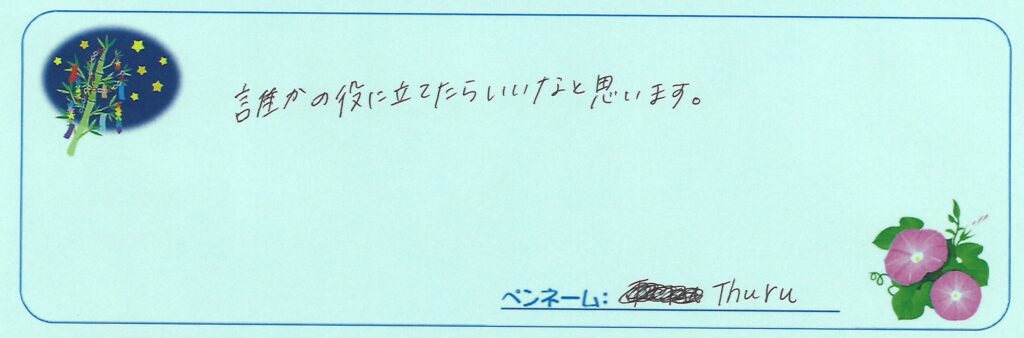 誰かの役に立てたらいいなと思います。
ペンネーム: Thuru